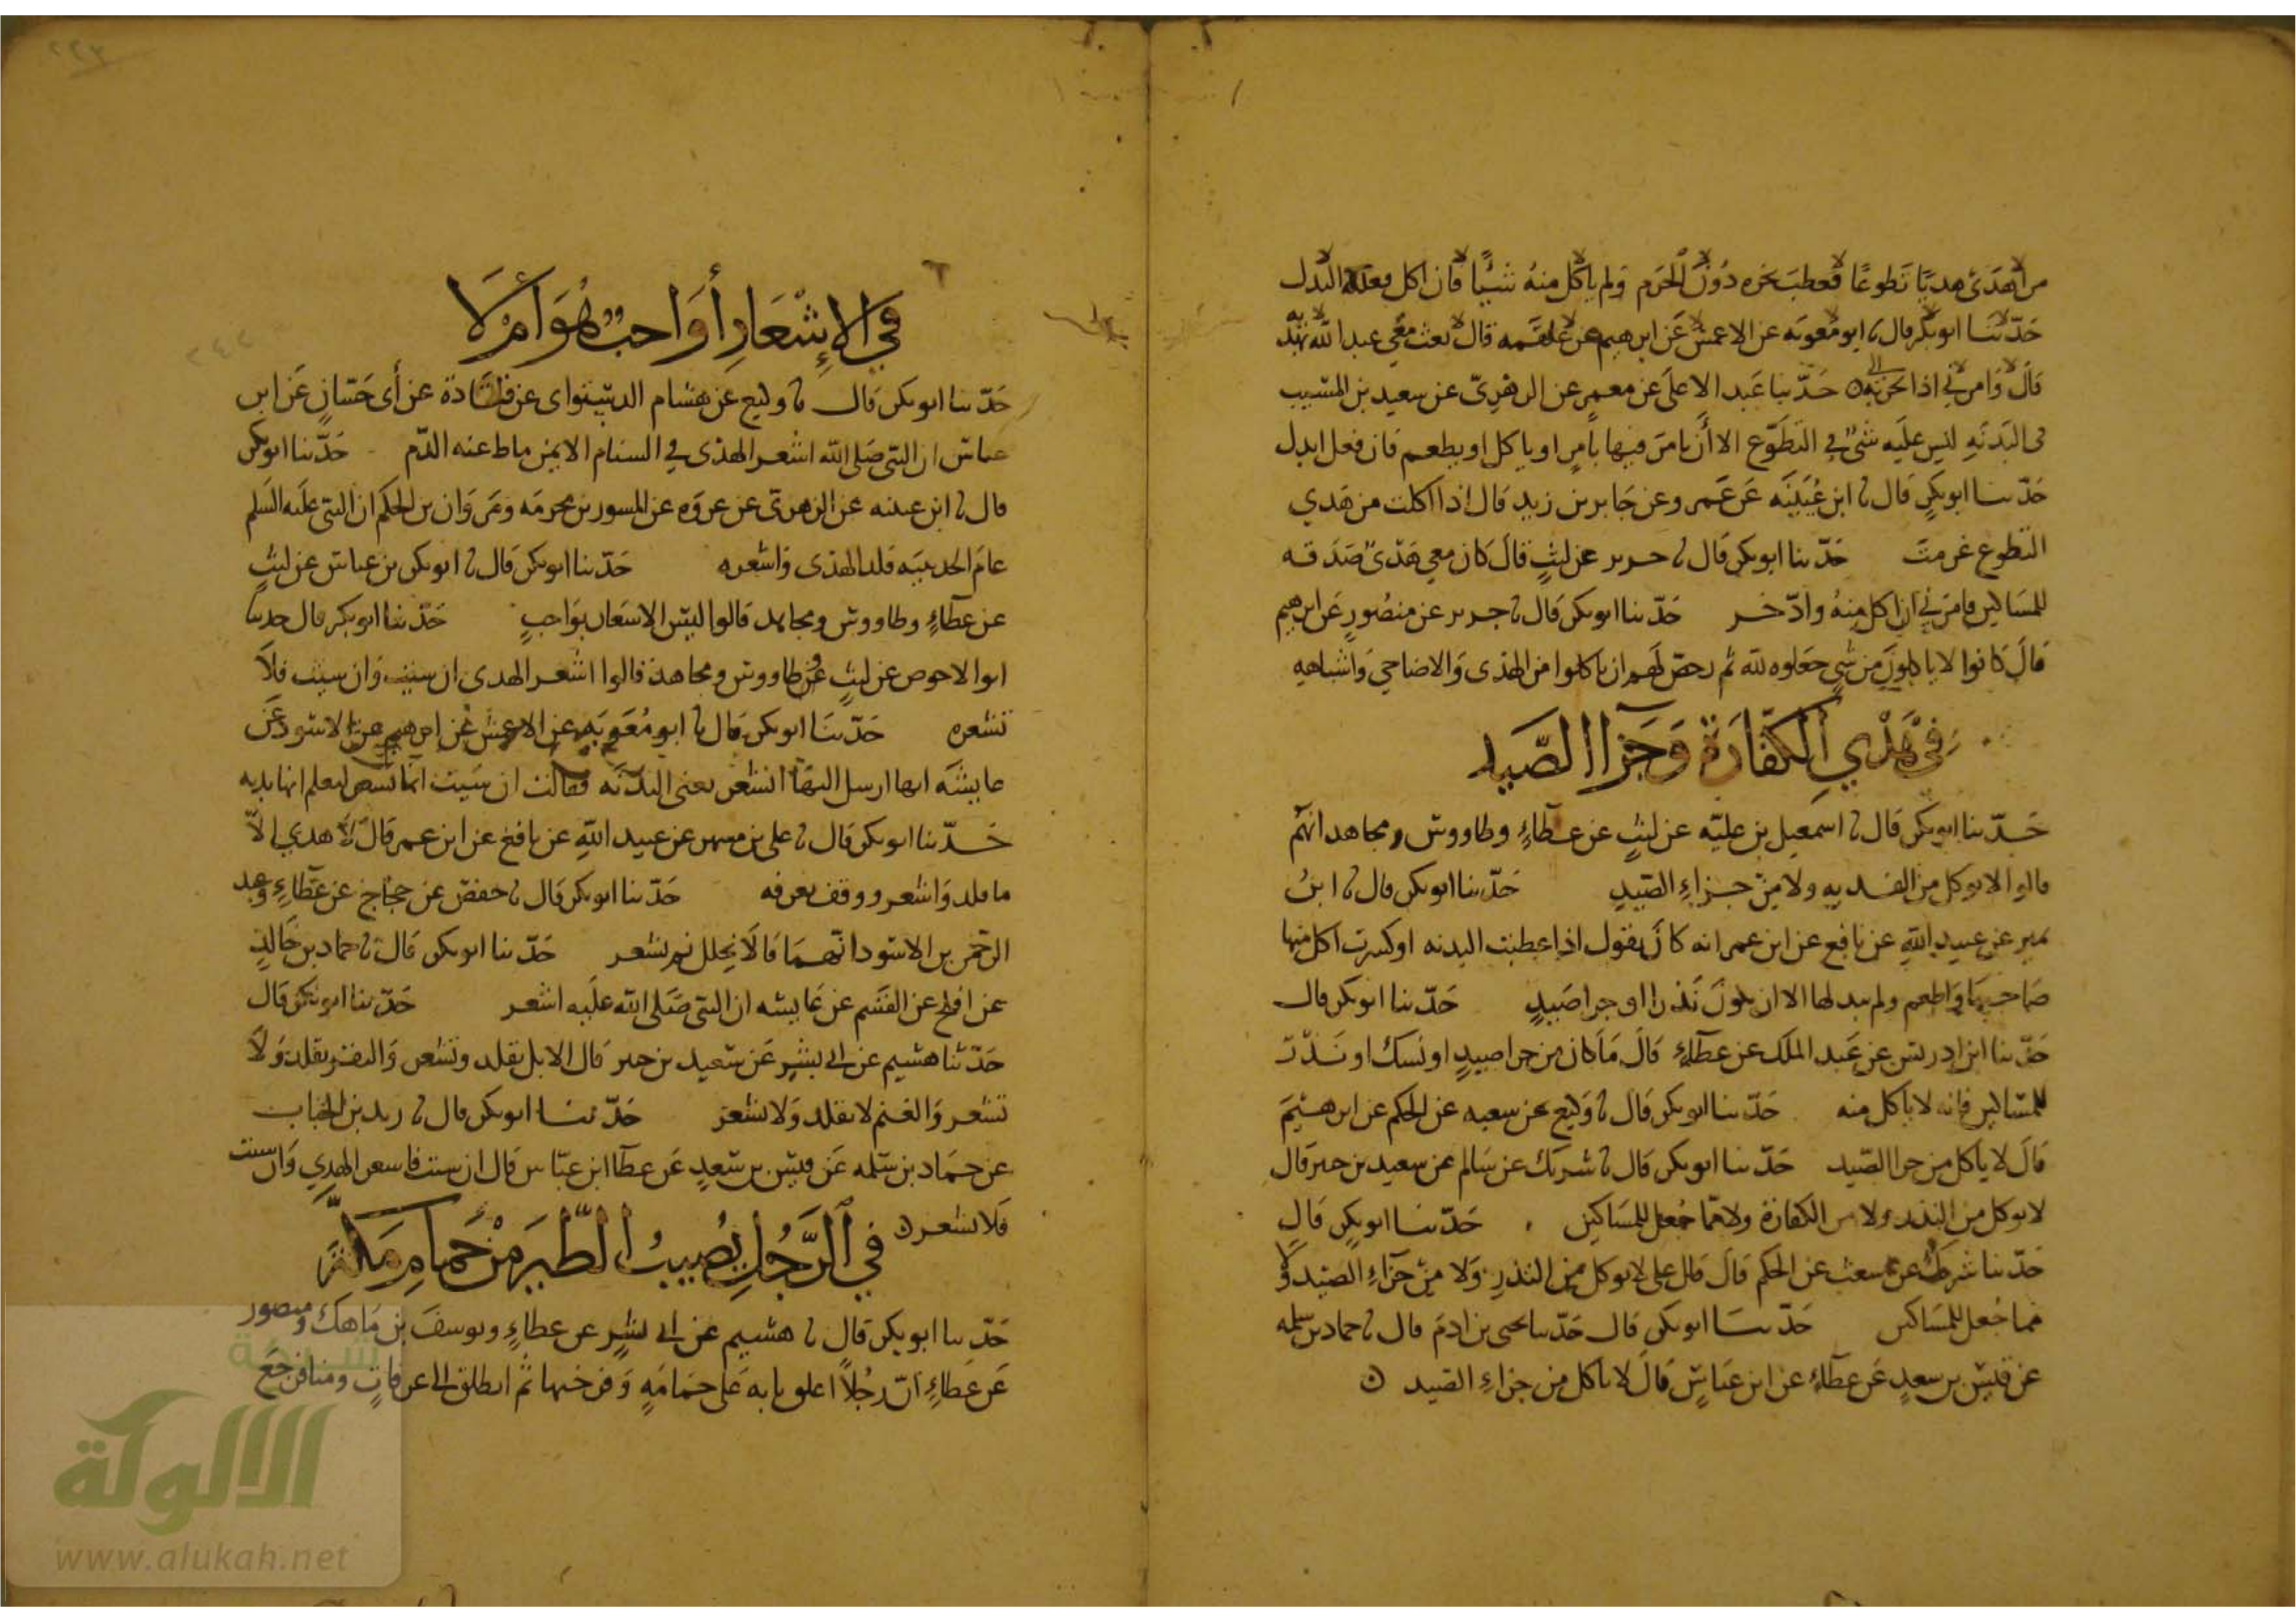 من اهدى هديًا تطوعًا فعطب نحره دون الحرم ولم ياكل منه شيئًا فان اكل فعليه البدل
حدثنا ابو بكر قال نا ابو معوية عن الاعمش عن ابرهيم عن علقمة قال بعث معي عبد الله بهديه
قال وامرني اذا نحرته حدثنا عبد الاعلى عن معمر عن الزهري عن سعيد بن المسيب
في البدنة ليس عليه شيء في التطوع الا أن يامر فيها بامرٍ او ياكل او يطعم فان فعل ابدل
حدثنا ابو بكر قال نا ابن عيينة عن عمرو عن جابر بن زيد قال اذا اكلت من هدي
التطوع غرمت حدثنا ابو بكر قال نا جرير عن ليث قال كان معي هدي صدقة
للمساكين فامرني ان اكل منه وادخر حدثنا ابو بكر قال نا جرير عن منصور عن ابرهيم
قال كانوا لا ياكلون من شي جعلوه لله ثم رخص لهم ان ياكلوا من الهدى والاضاحي واشباهه
في هدي الكفارة وجزاا الصيد
حدثنا ابو بكر قال نا اسمعيل بن علية عن ليث عن عطاء وطاووس ومجاهد انهم
قالوا لا يوكل من الفدية ولا من جزاء الصيد حدثنا ابو بكر قال نا ابن
نمير عن عبيد الله عن نافع عن ابن عمر انه كان يقول اذا عطبت البدنة او كسرت اكل منها
صاحبها واطعم ولم يبدلها الا ان يكون نذرا او جزا صيد حدثنا ابو بكر قال
حدثنا ابن ادريس عن عبد الملك عن عطاء قال ما كان من جزا صيد او نسك او نذر
للمساكين فانه لا ياكل منه حدثنا ابو بكر قال نا وكيع عن سعيه عن الحكم عن ابرهيم
قال لا ياكل من جزا الصيد حدثنا ابو بكر قال نا شريك عن سالم عن سعيد بن جبير قال
لا يوكل من النذر ولا من الكفارة ولا مما جعل للمساكين حدثنا ابو بكر قال
حدثنا شريك عن اشعث عن الحكم قال قال علي لا يوكل من النذر ولا من جزاء الصيد ولا
مما جعل للمساكين حدثنا ابو بكر قال حدثنا يحيى بن ادم قال نا حماد بن سلمة
عن قيس بن سعد عن عطاء عن ابن عباس قال لا ياكل من جزاء الصيد
٢٢٣
في الإشعار أواجب هو أم لا
حدثنا ابو بكر قال نا وكيع عن هشام الدستواى عن قتادة عن أبي حسان عن ابن
عباس ان النبي صلى الله اشعر الهدى في السنام الايمن ماط عنه الدم حدثنا ابو بكر
قال نا ابن عيينة عن الزهري عن عروة عن المسور بن مخرمة ومروان بن الحكم ان النبي عليه السلم
عام الحديبية قلد الهدى واشعره حدثنا ابو بكر قال نا ابو بكر بن عياش عن ليث
عن عطاء وطاووس ومجاهد قالوا ليس الاشعار بواجب حدثنا ابو بكر قال حدثنا
ابوا الاحوص عن ليث عن طاووس ومجاهد قالوا اشعر الهدى ان شئت وان شئت فلا
تشعره حدثنا ابو بكر قال نا ابو معوية عن الاعمش عن ابرهيم عن الاسود عن
عايشة انها ارسل اليها انشعر يعني البدنة فقالت ان شيت انما تشعر ليعلم انها بدنه
حدثنا ابو بكر قال نا علي بن مسهر عن عبيد الله عن نافع عن ابن عمر قال لا هدي الا
ما قلد واشعر ووقف بعرفه حدثنا ابو بكر قال نا حفص عن حجاج عن عطاء وعبد
الرحمن بن الاسود انهما قالا يجلل ثم يشعر حدثنا ابو بكر قال نا حماد بن خالد
عن افلح عن القسم عن عايشه ان النبي صلى الله عليه اشعر حدثنا ابو بكر قال
حدثنا هشيم عن ابي بشر عن سعيد بن جبير قال الابل تقلد وتشعر والبقر تقلد ولا
تشعر والغنم لا تقلد ولا تشعر حدثنا ابو بكر قال نا زيد بن الحباب
عن حماد بن سلمه عن قيس بن سعد عن عطا ابن عباس قال ان شئت فاشعر الهدي وان شئت
فلا تشعر
في الرجل يصيب الطير من حمام مكة
حدثنا ابو بكر قال نا هشيم عن ابي بشر عن عطاء ويوسف بن ماهك ومنصور
عن عطاء ان رجلا اغلق بابه على حمامة وفرخيها ثم انطلق الى عرفات ومنا فرجع
شبكة
الالوكة
www.alukah.net